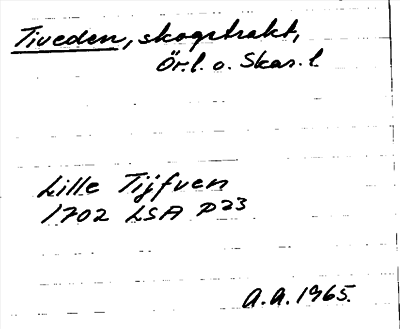 Tiveden, skogstrakt,
Ör.l. o. Skar.l.
Lille Tijfven
1702 LSA P23
A.A. 1965.